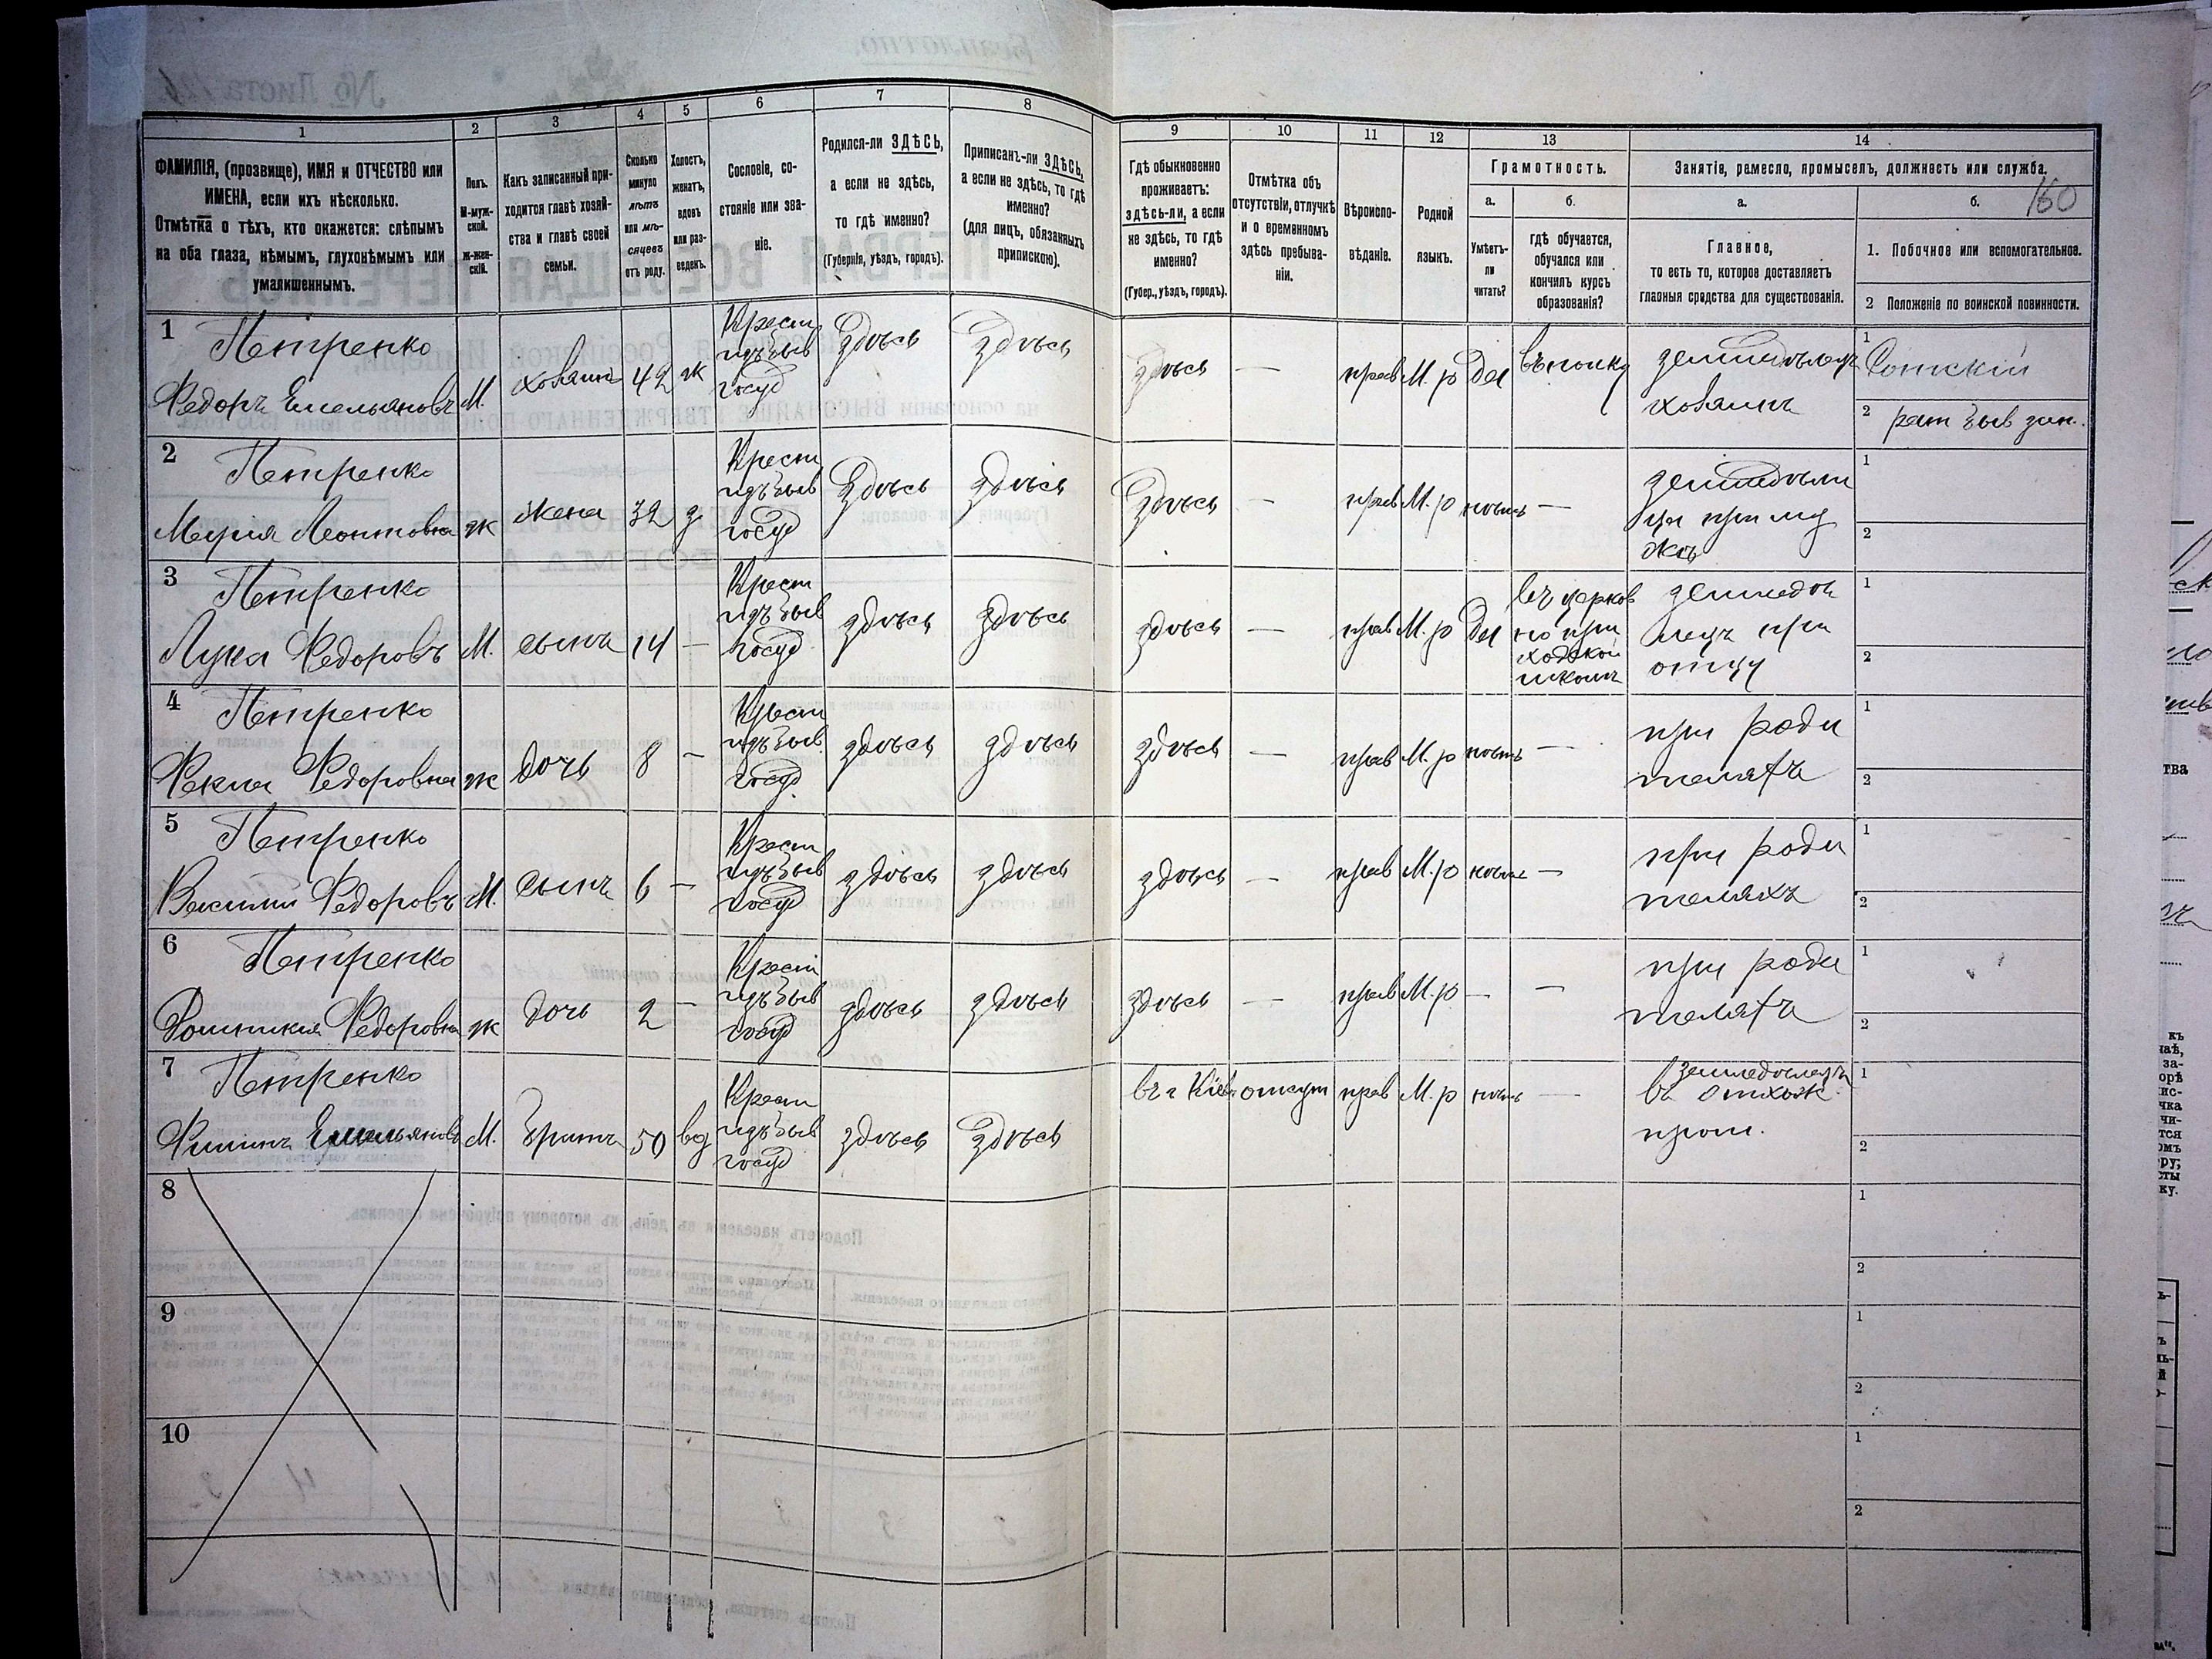 1 2 3 4 5 6 7 8 9 10 11 12 13 14
ФАМИЛІЯ, (прозвище), ИМЯ и ОТЧЕСТВО или
ИМЕНА, если ихъ нѣсколько.
Отмѣтка о тѣхъ, кто окажется: слѣпымъ
на оба глаза, нѣмымъ, глухонѣмымъ или
умалишеннымъ.
Полъ.
М-муж-
ской.
Ж-жен-
скій.
Какъ записанный при-
ходится главѣ хозяй-
ства и главѣ своей
семьи.
Сколько
минуло
лѣтъ
или мѣ-
сяцевъ
отъ роду.
Холостъ,
женатъ,
вдовъ
или раз-
веденъ.
Сословіе, со-
стояніе или зва-
ніе.
Родился-ли ЗДѢСЬ,
а если не здѣсь,
то гдѣ именно?
(Губернія, уѣздъ, городъ).
Приписанъ-ли ЗДѢСЬ,
а если не здѣсь, то гдѣ
именно?
(для лицъ, обязанныхъ
припискою).
Гдѣ обыкновенно
проживаетъ:
здѣсь-ли, а если
не здѣсь, то гдѣ
именно?
(Губер., уѣздъ, городъ).
Отмѣтка объ
отсутствіи, отлучкѣ
и о временномъ
здѣсь пребыва-
ніи.
Вѣроиспо-
вѣданіе.
Родной
языкъ.
Грамотность.
а.
Умѣетъ-
ли
читать?
б.
гдѣ обучается,
обучался или
кончилъ курсъ
образованія?
Занятіе, рамесло, промыселъ, должность или служба.
160
а.
Главное,
то есть то, которое доставляетъ
главныя средства для существованія.
б.
1. Побочное или вспомогательное.
2 Положеніе по воинской повинности.
1 Петренко
Федоръ Емельяновъ М. хозяинъ 42 ж
Крест
изъ быв
госуд
Здѣсь Здѣсь здѣсь — прав М. р да
земледѣлецъ
хозяинъ
1 Сотскій
2 рат
2 Петренко
Марія Леонтовна ж жена 32 з
Крест
изъ быв
госуд
Здѣсь здѣсь Здѣсь — прав М. р нѣтъ —
1
2
3 Петренко
Лука Федоровъ М. сынъ 14 —
Крест
изъ быв
госуд
здѣсь здѣсь здѣсь — прав М. р да
въ церков
но при
ходской
школѣ
земледѣ
лецъ при
отцу
1
2
4 Петренко
Фекла Федоровна ж дочь 8 —
Крест
изъ быв
госуд
здѣсь здѣсь здѣсь — прав М. р нѣтъ —
при роди
теляхъ
1
2
5 Петренко
Василій Федоровъ М. сынъ 6 —
Крест
изъ быв
госуд
здѣсь здѣсь здѣсь — прав М. р нѣтъ —
при роди
теляхъ
1
2
6 Петренко
Домникия Федоровна ж дочь 2 —
Крест
изъ быв
госуд
здѣсь здѣсь здѣсь — прав М. р — —
при роди
теляхъ
1
2
7 Петренко
Филипъ Емельяновъ М. братъ 50 вд
Крест
изъ быв
госуд
здѣсь Здѣсь въ г Кіев отсут прав М. р нѣтъ —
земледѣлецъ
въ отхож.
пром.
1
2
8
1
2
9
1
2
10
1
2